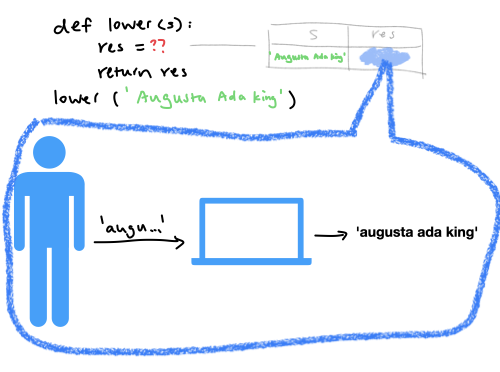 def lower(s):
res = ??
return res
lower ('Augusta Ada King')
s res
'Augusta Ada King'
'augu...'
'augusta ada king'